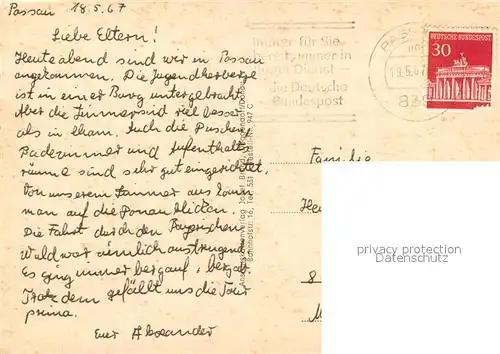 Passau 18.5.67
Liebe Eltern!
Heute abend sind wir in Passau
angekommen. Die Jugendherberge
ist in einer Burg untergebracht.
Aber die Zimmer sind viel besser
als in Cham. Auch die Duschen,
Badezimmer und Aufenthalts-
räume sind sehr gut eingerichtet.
Von unserem Zimmer aus kann
man auf die Donau blicken.
Die Fahrt durch den Bayerischen
Wald war ziemlich anstrengend.
Es ging immer bergauf, bergab.
Trotzdem gefällt uns die Tour
prima.
Euer Alexander
Immer für Sie
bereit, immer in
Dienst
die Deutsche
Bundespost
19.5.67
839
DEUTSCHE BUNDESPOST
30
Familie
He
8
M
privacy protection
AnsichtskartenLexikon.de